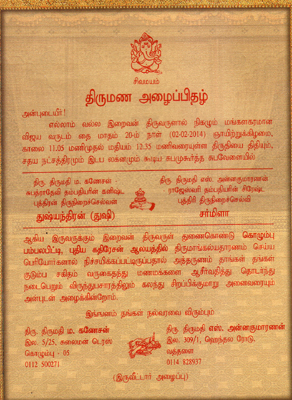 சிவமயம்
திருமண அழைப்பிதழ்
அன்புடையீர்!
எல்லாம் வல்ல இறைவன் திருவருளால் நிகழும் மங்களகரமான
விஜய வருடம் தை மாதம் 20-ம் நாள் (02-02-2014) ஞாயிற்றுக்கிழமை,
காலை 11.05 மணிமுதல் மதியம் 12.35 மணிவரையுள்ள திருதியை திதியும்,
சதய நட்சத்திரமும் இடப லக்னமும் கூடிய சுபமுகூர்த்த சுபவேளையில்
திரு. திருமதி ம. கணேசன்
சுபத்ராதேவி தம்பதியரின் கனிஷ்ட
புத்திரன் திருநிறைச்செல்வன்
துஷ்யந்திரன் (துஷி)
திரு. திருமதி எஸ். அன்னகுமாரணன்
ராஜேஸ்வரி தம்பதியரின் சிரேஷ்ட
புத்திரி திருநிறைச்செல்வி
சர்மிளா
ஆகிய இருவருக்கும் இறைவன் திருவருள் துணைகொண்டு கொழும்பு
பம்பலப்பிட்டி, புதிய கதிரேசன் ஆலயத்தில் திருமாங்கல்யதாரணம் செய்ய
பெரியோர்களால் நிச்சயிக்கப்பட்டிருப்பதால் அத்தருணம் தாங்கள் தங்கள்
குடும்ப சகிதம் வருகைதந்து மணமக்களை ஆசீர்வதித்து தொடர்ந்து
நடைபெறும் விருந்துபசாரத்திலும் கலந்து சிறப்பிக்குமாறு அனைவரையும்
அன்புடன் அழைக்கின்றோம்.
இங்ஙனம் நங்கள் நல்வரவை விரும்பும்
திரு. திருமதி ம. கணேசன்
இல. 5/25, கலைமன டெரஸ்
கொழும்பு - 05
0112 500271
திரு. திருமதி எஸ். அன்னகுமாரணன்
இல. 309/1, ஹெந்தல ரோட்,
வத்தளை
0114 828937
(இருவீட்டார் அழைப்பு)